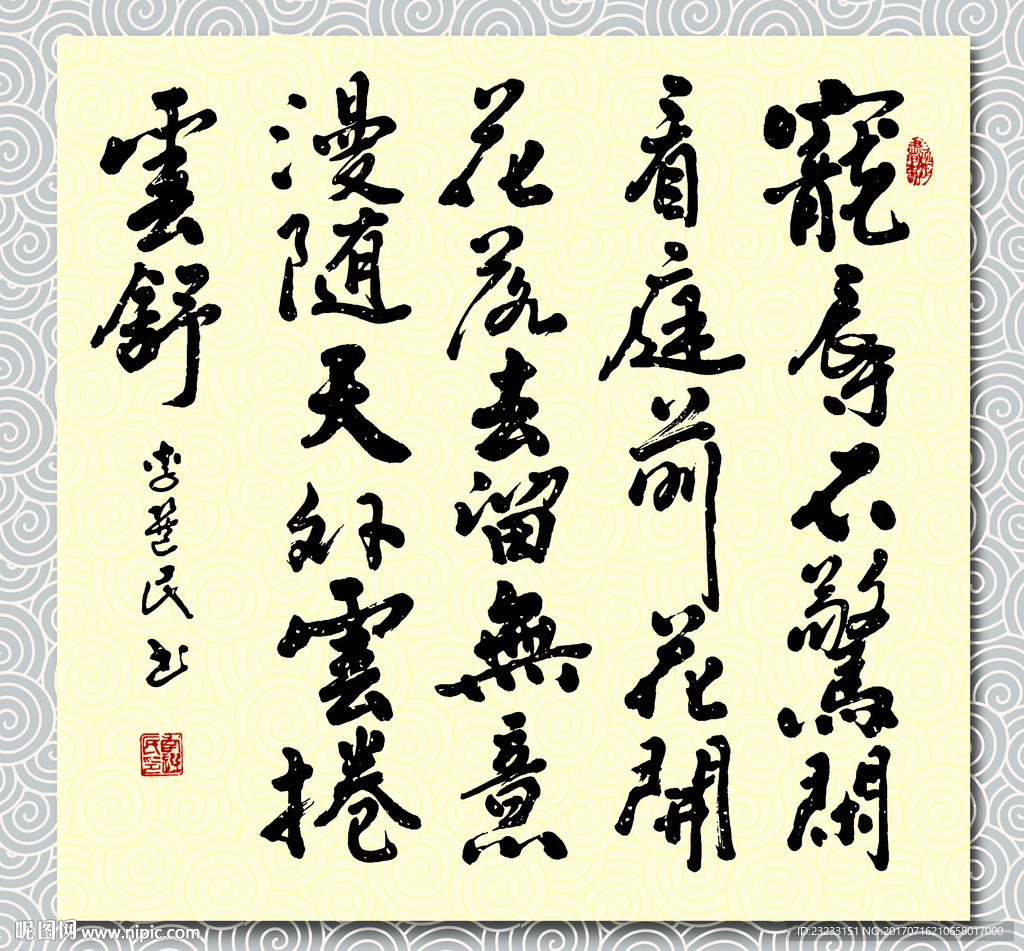 寵辱不驚閑
看庭前花開
花落去留無意
漫随天外雲捲
雲舒
民书
昵图网 www.nipic.com
ID:23233151 NO:20170716210658017000